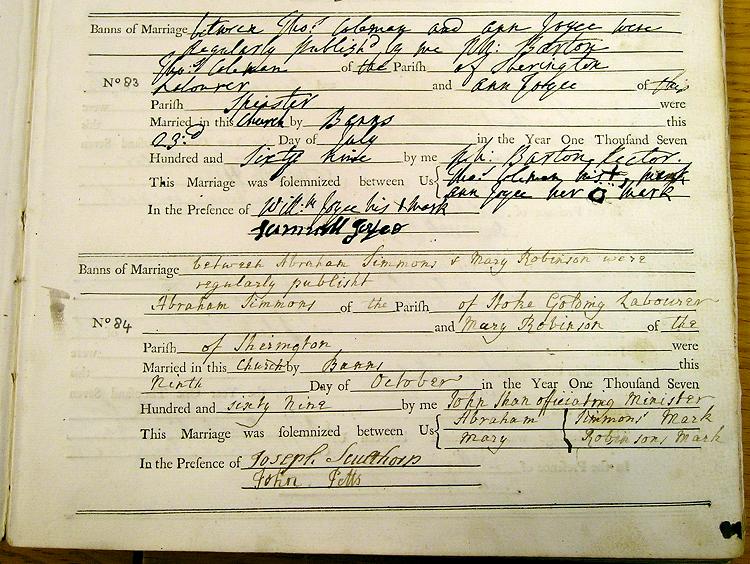 Banns of Marriage between Thos. Coleman and ann Joyce were
regularly Publish'd by me Barton
Thos. Coleman of the Pariſh of Sherington
No 83 Labourer and ann Joyce of this
Pariſh Spinster were
Married in this Church by Banns this
23:d Day of July in the Year One Thousand Seven
Hundred and Sixty nine by me Barton, Rector
This Marriage was solemnized between Us Thos. Coleman his + mark
ann Joyce her O mark
In the Presence of Will:m Joyce his + mark
Joyce
Banns of Marriage between Abraham Simmons & Mary Robinson were
regularly publisht
Abraham Simmons of the Pariſh of Stoke Golding Labourer
No 84 and Mary Robinson of the
Pariſh of Sherington were
Married in this Church by Banns this
Ninth Day of October in the Year One Thousand Seven
Hundred and sixty nine by me John Shan officiating Minister
This Marriage was solemnized between Us Abraham Simmons' Mark
Mary Robinsons Mark
In the Presence of Joseph Scuthorp
John Petts